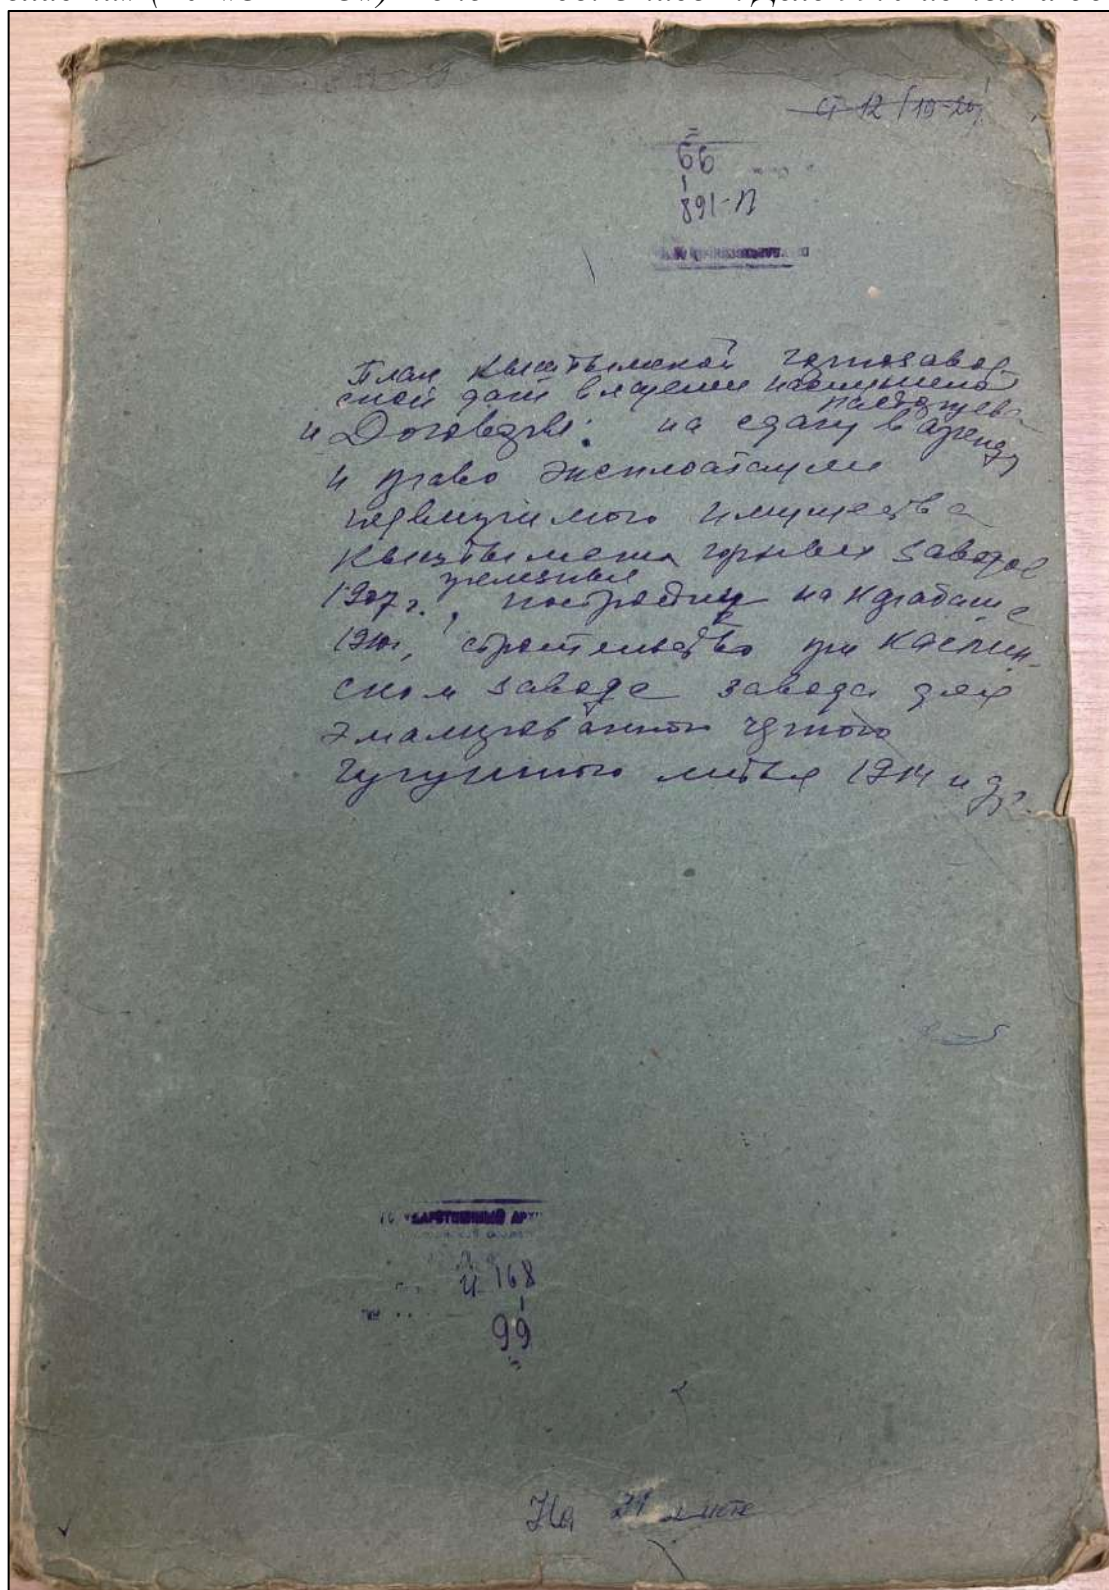 ст 12 (19-20)
66
891-П
План Кыштымской горнозавод-
ской дачи владении наследников
и Договоры: на сдачу в аренду
и право эксплоатации
недвижимого имущества
Кыштымских горных заводов
1907 г., железные постройки на Карабаше
1910г, строительство при Каслин-
ском заводе завода для
эмалированного черного
чугунного литья 1914 и др.
ГОСУДАРСТВЕННЫЙ АР
И-168
1
99
На 21 листе